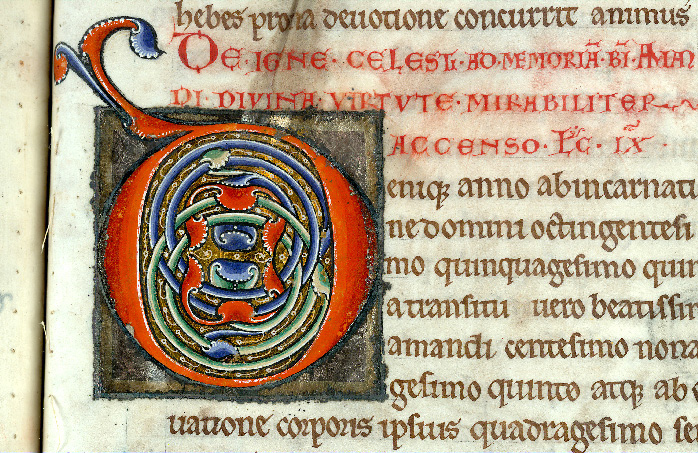 hebes prona deuotione concurrit animus
DE·IGNE·CELESTI·AD·MEMORIĀ·BĪ·AMAN
DI·DIVINA·VIRTVTE·MIRABILITER
ACCENSO·LC̄·IX·
Deniq; anno ab incarnati
ne domini octingentesi
mo quinquagesimo quin
a transitu uero beatissi
amandi centesimo nona
gesimo quinto atq; ab
uatione corporis ipsius quadragesimo se